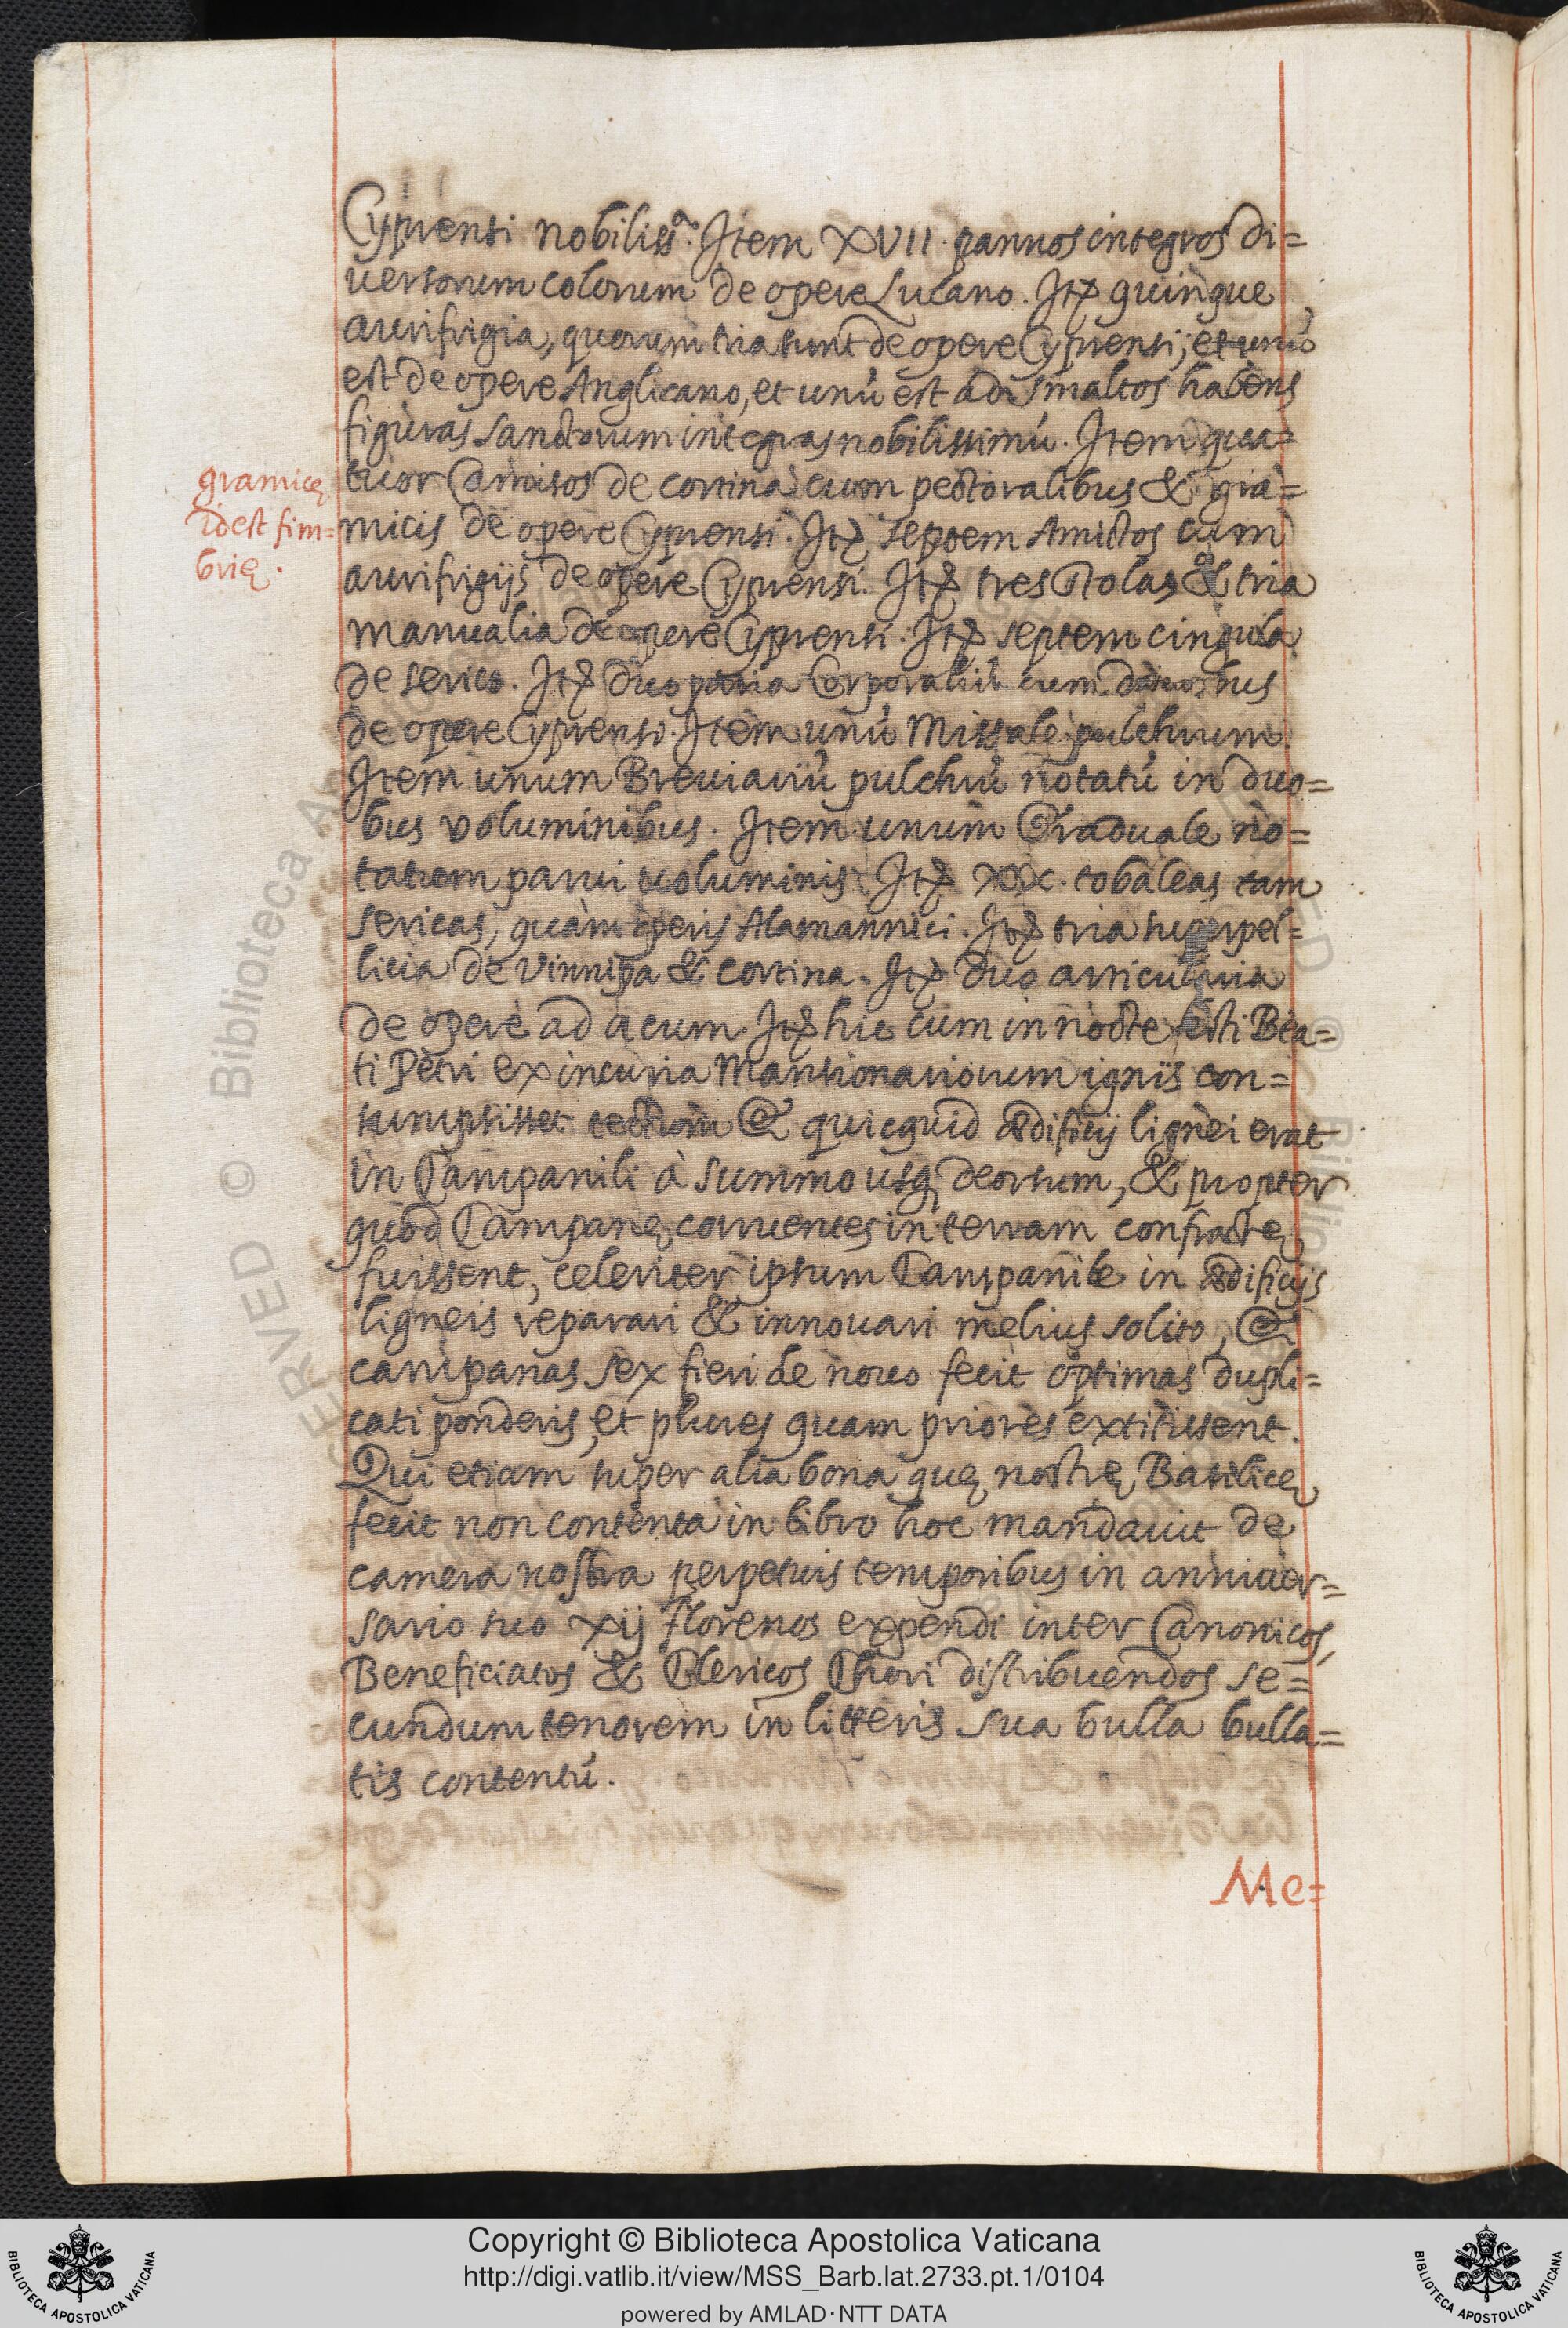 Cyprensi nobilissᵃ. Item XVII. pannos integros di=
uersorum colorum de opere Lucano. Itẽ quinque
aurifrigia, quorum tria sunt de opere Cyprensi, et unũ
est de opere Anglicano, et unũ est ad smaltos habens
figuras sanctorum integras nobilissimũ. Item qua=
tuor Camisos de cortina cum pectoralibus & gra=
gramicę
idest fim=
brię.
micis de opere Cyprensi. Itẽ septem Amictos cum
aurifrigijs de opere Cyprensi. Itẽ tres stolas & tria
manualia de opere Cyprensi. Itẽ septem cingula
de serico. Itẽ duo paria Corporaliũ cum domibus
de opere Cyprensi. Item unũ Missale pulchrum.
Item unum Breuiariũ pulchrũ notatũ in duo=
bus voluminibus. Item unum Graduale no=
tatum parui uoluminis. Itẽ XIX. tobaleas tam
sericas, quàm operis Alamannici. Itẽ tria superpel=
licia de Vinnipa & cortina. Itẽ duo auricularia
de opere ad acum. Itẽ hic cum in nocte festi Bea=
ti Petri ex incuria Mansionariorum ignis con=
sumpsisset tectum & quicquid ædificij lignei erat
in Campanili à summo usq; deorsum, & propter
quod Campanę corruentes in terram confractę
fuissent, celeriter ipsum Campanile in ædificijs
ligneis reparari & innouari melius solito, &
campanas sex fieri de nouo fecit optimas dupli=
cati ponderis, et plures quam priores extitissent.
Qui etiam super alia bona quę nostrę Basilicę
fecit non contenta in libro hoc mandauit de
camera nostra perpetuis temporibus in anniuer=
sario suo xij florenos expendi inter Canonicos,
Beneficiatos & Clericos Chori distribuendos se=
cundum tenorem in litteris sua bulla bulla=
tis contentũ.
Me=
Copyright © Biblioteca Apostolica Vaticana
http://digi.vatlib.it/view/MSS_Barb.lat.2733.pt.1/0104
powered by AMLAD·NTT DATA
BIBLIOTECA APOSTOLICA VATICANA
BIBLIOTECA APOSTOLICA VATICANA